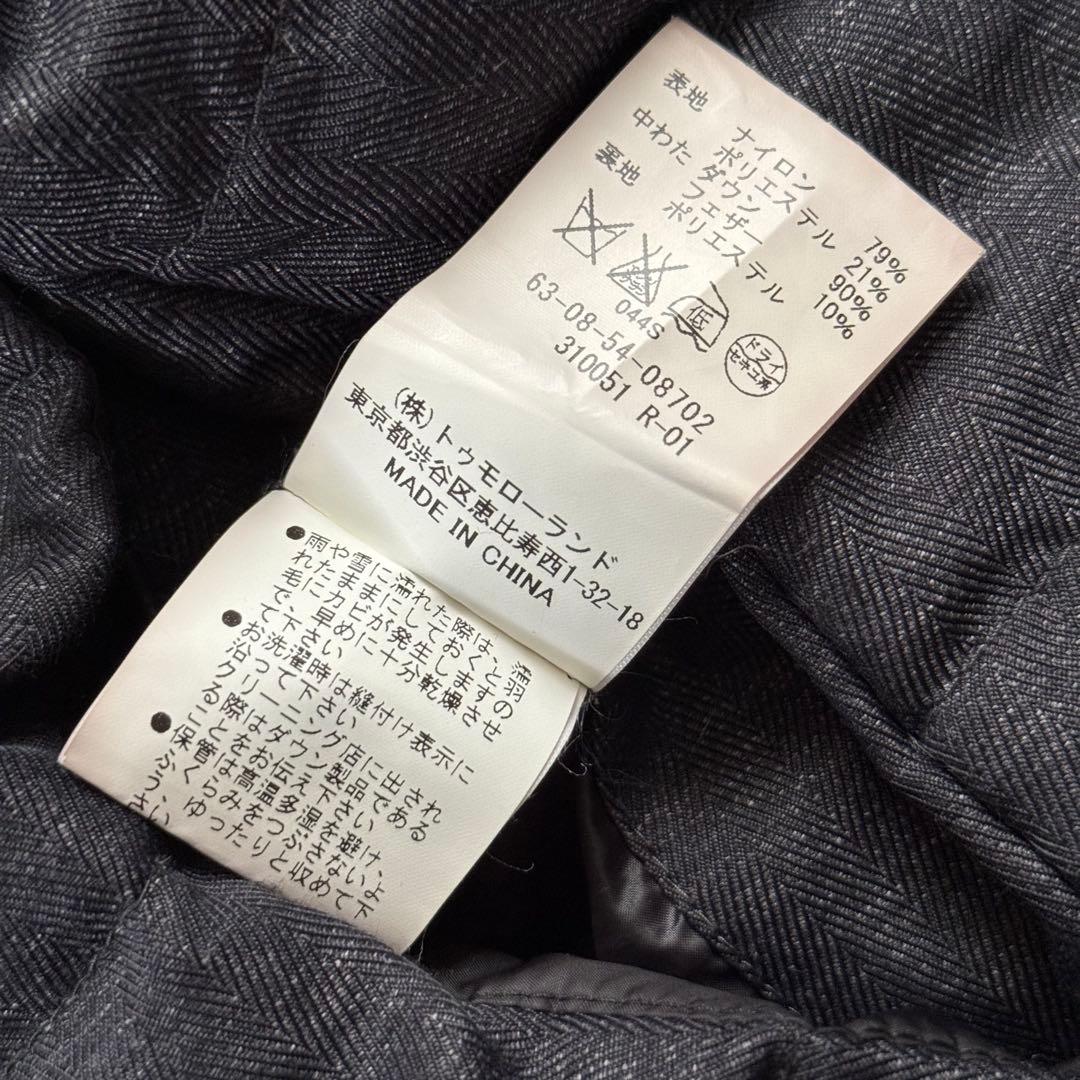 表地 ナイロン 79%
ポリエステル 21%
中わた ダウン 90%
フェザー 10%
裏地 ポリエステル
エンソ
サラシ
低
ドライ
セキユ系
044S
63-08-54-08702
310051 R-01
(株)トゥモローランド
東京都渋谷区恵比寿西1-32-18
MADE IN CHINA
●雨や雪に濡れた際は、濡
れたままにしておくと羽
毛にカビが発生しますの
で、早めに十分乾燥させ
て下さい
●お洗濯時は縫付け表示に
沿って下さい
クリーニング店に出され
る際はダウン製品である
ことをお伝え下さい
●保管は高温多湿を避け、
ふくらみをつぶさないよ
う、ゆったりと収めて下
さい